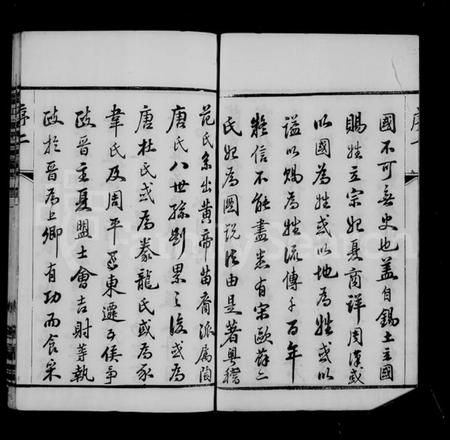 國不可無史也蓋自錫土立國
賜姓立宗妃夏商詳周漢或
以國為姓或以地為姓或以
謚以賜為姓流傳千百年
難信不能盡悉有宋歐蘇二
氏為圖說法由是著粵稽
范氏系出黃帝苗裔派属陶
唐氏八世孫劉累之後或為
唐杜氏或為豢龍氏或為豕
韋氏及周平王東遷五侯爭
政晋主夏盟士會吉射等執
政於晋為上卿有功而食采
序二